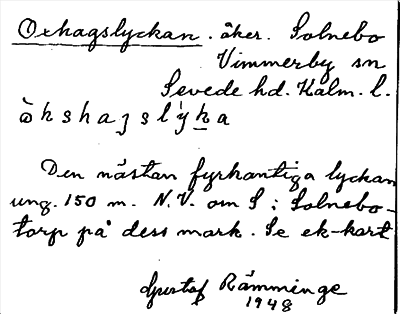 Oxhagslyckan. åker. Solnebo
Vimmerby sn
Sevede hd. Kalm. l.
ò̀kshaʒslýka
Den nästan fyrkantiga lyckan
ung. 150 m. N.V. om S i Solnebo-
torp på dess mark. Se ek-kart
Gustaf Rämminge
1948